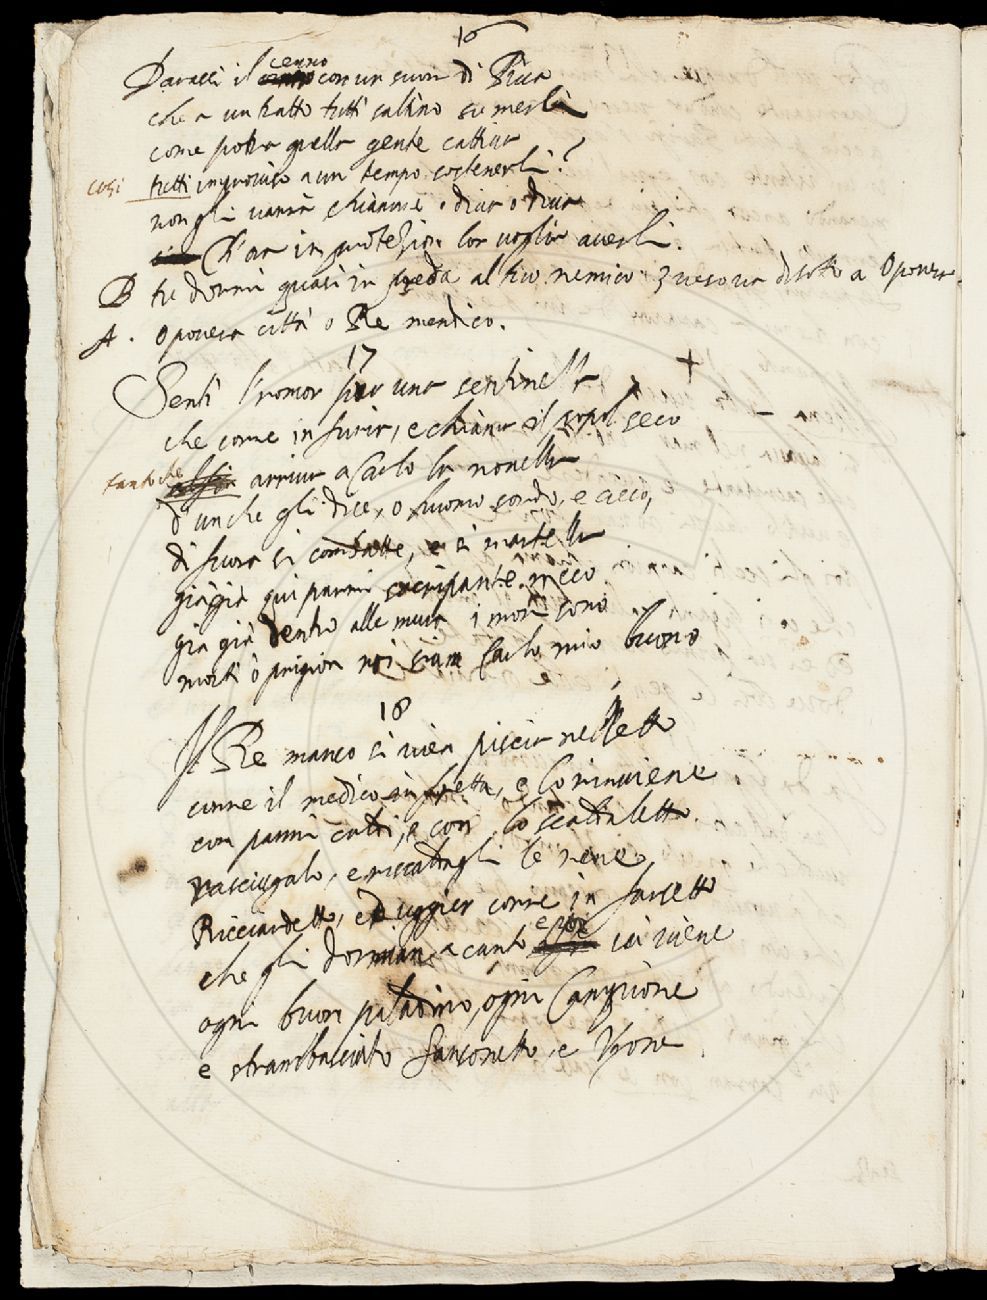 16
Darassi il cenno con un suon di Piva
che a un tratto tutti saltino su merli
come potra quella gente cattiva
cosi tutti improviso a un tempo sostenerli?
non gli varrà chiamare o diva o diva
l'ar in protezion lor voglia averli.
B tu dormi quasi in preda al tuo nemico
A. o povera città o Re mendico.
17 +
Senti l'romor una sentinella
che corre in furia, e chiama il sopol seco
tanto che arriva a Carlo la novella
d'un che gli dice, o huomo sordo, e cieco,
di fuora si combatte, e si martella
già già qui parmi sacripante meco
già già dentro alle mura i mori sono
morti ò prigion noi siam Carlo mio buono
18
Il Re manco si vien piscia nel letto
corre il medico in fretta, e lo rinviene
con panni caldi, e con lo scaldaletto
rasciugalo, e riscaldagli le rene
Ricciardetto, e Ruggier corre in farsetto
che gli dormian a canto e poi vi viene
ogni buon paladino, ogni Campione
e strambasciato Sansonetto, e Ivone